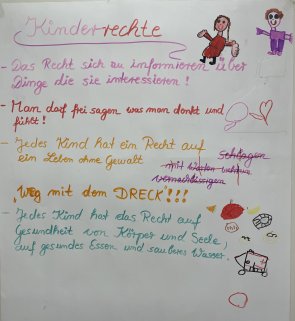 Kinderrechte
- Das Recht sich zu informieren über
Dinge die sie interessieren!
- Man darf frei sagen was man denkt und
fühlt!
- Jedes Kind hat ein Recht auf
ein Leben ohne Gewalt
schlagen
mit Worten verletzen
vernachlässigen
"Weg mit dem DRECK"!!!
- Jedes Kind hat das Recht auf
Gesundheit von Körper und Seele,
auf gesundes Essen und sauberes Wasser.